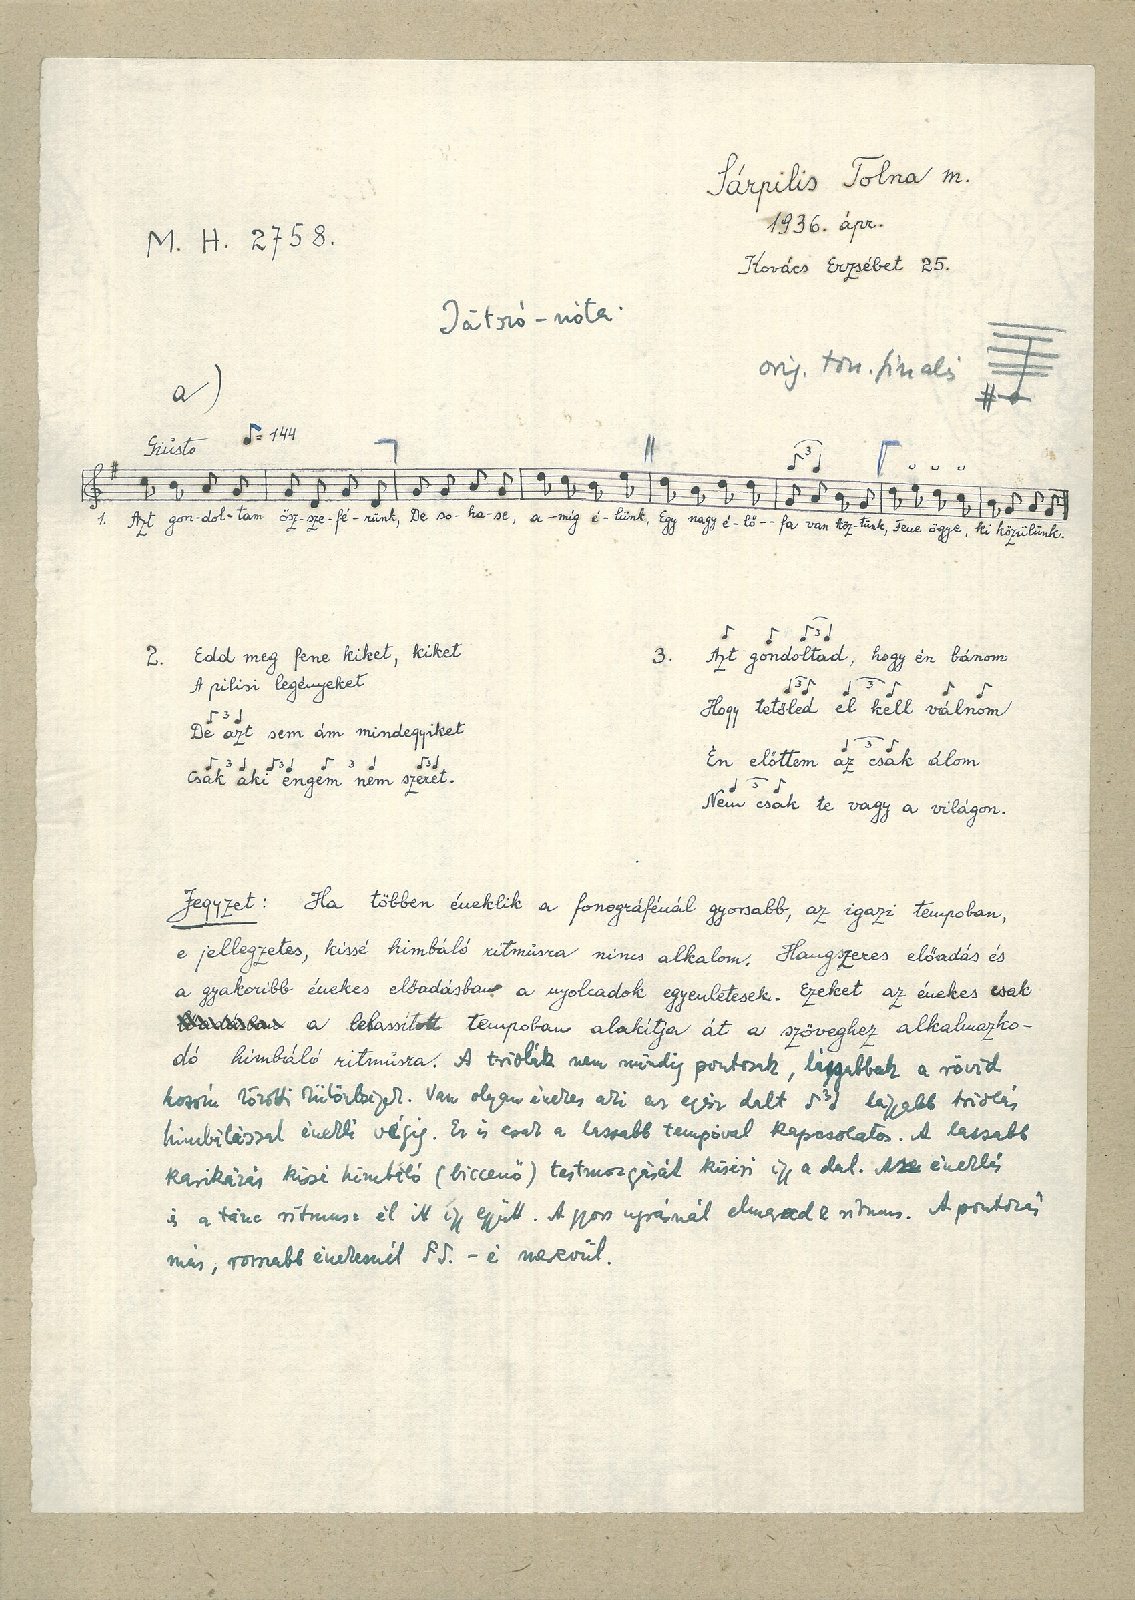 Sárpilis Tolna m.
1936. ápr.
M. H. 2758.
Kovács Erzsébet 25.
Játszó-nóta.
orig. ton. finalis
a)
Giusto ♪= 144
1. Azt gon-dol-tam ösz-sze-fé-rünk, De so-ha-se, a-míg é-lünk, Egy nagy é-lő--fa van köz-tünk, Fene ögye, ki közülünk.
2. Edd meg fene kiket, kiket
A pilisi legényeket
De azt sem ám mindegyiket
Csak aki engem nem szeret.
3. Azt gondoltad, hogy én bánom
Hogy tetőled el kell válnom
Én előttem az csak álom
Nem csak te vagy a világon.
Jegyzet: Ha többen éneklik a fonográfénál gyorsabb, az igazi tempoban,
e jellegzetes, kissé himbáló ritmusra nincs alkalom. Hangszeres előadás és
a gyakoribb énekes előadásban a nyolcadok egyenletesek. Ezeket az énekes csak
a lelassított tempoban alakítja át a szöveghez alkalmazko-
dó himbáló ritmusra. A triolák nem mindig pontosak, lágyabbak a rövid
hosszú közötti különbségek. Van olyan énekes aki az egész dalt lágyabb triolás
himbálással énekli végig. Ez is csak a lassabb tempóval kapcsolatos. A lassabb
karikázás kissé himbáló (biccenő) testmozgását kíséri így a dal. Az éneklés
és a tánc ritmusa él itt így együtt. A gyors ugrásnál elmarad e ritmus. A pontozás
más, rosszabb énekesnél -é merevül.